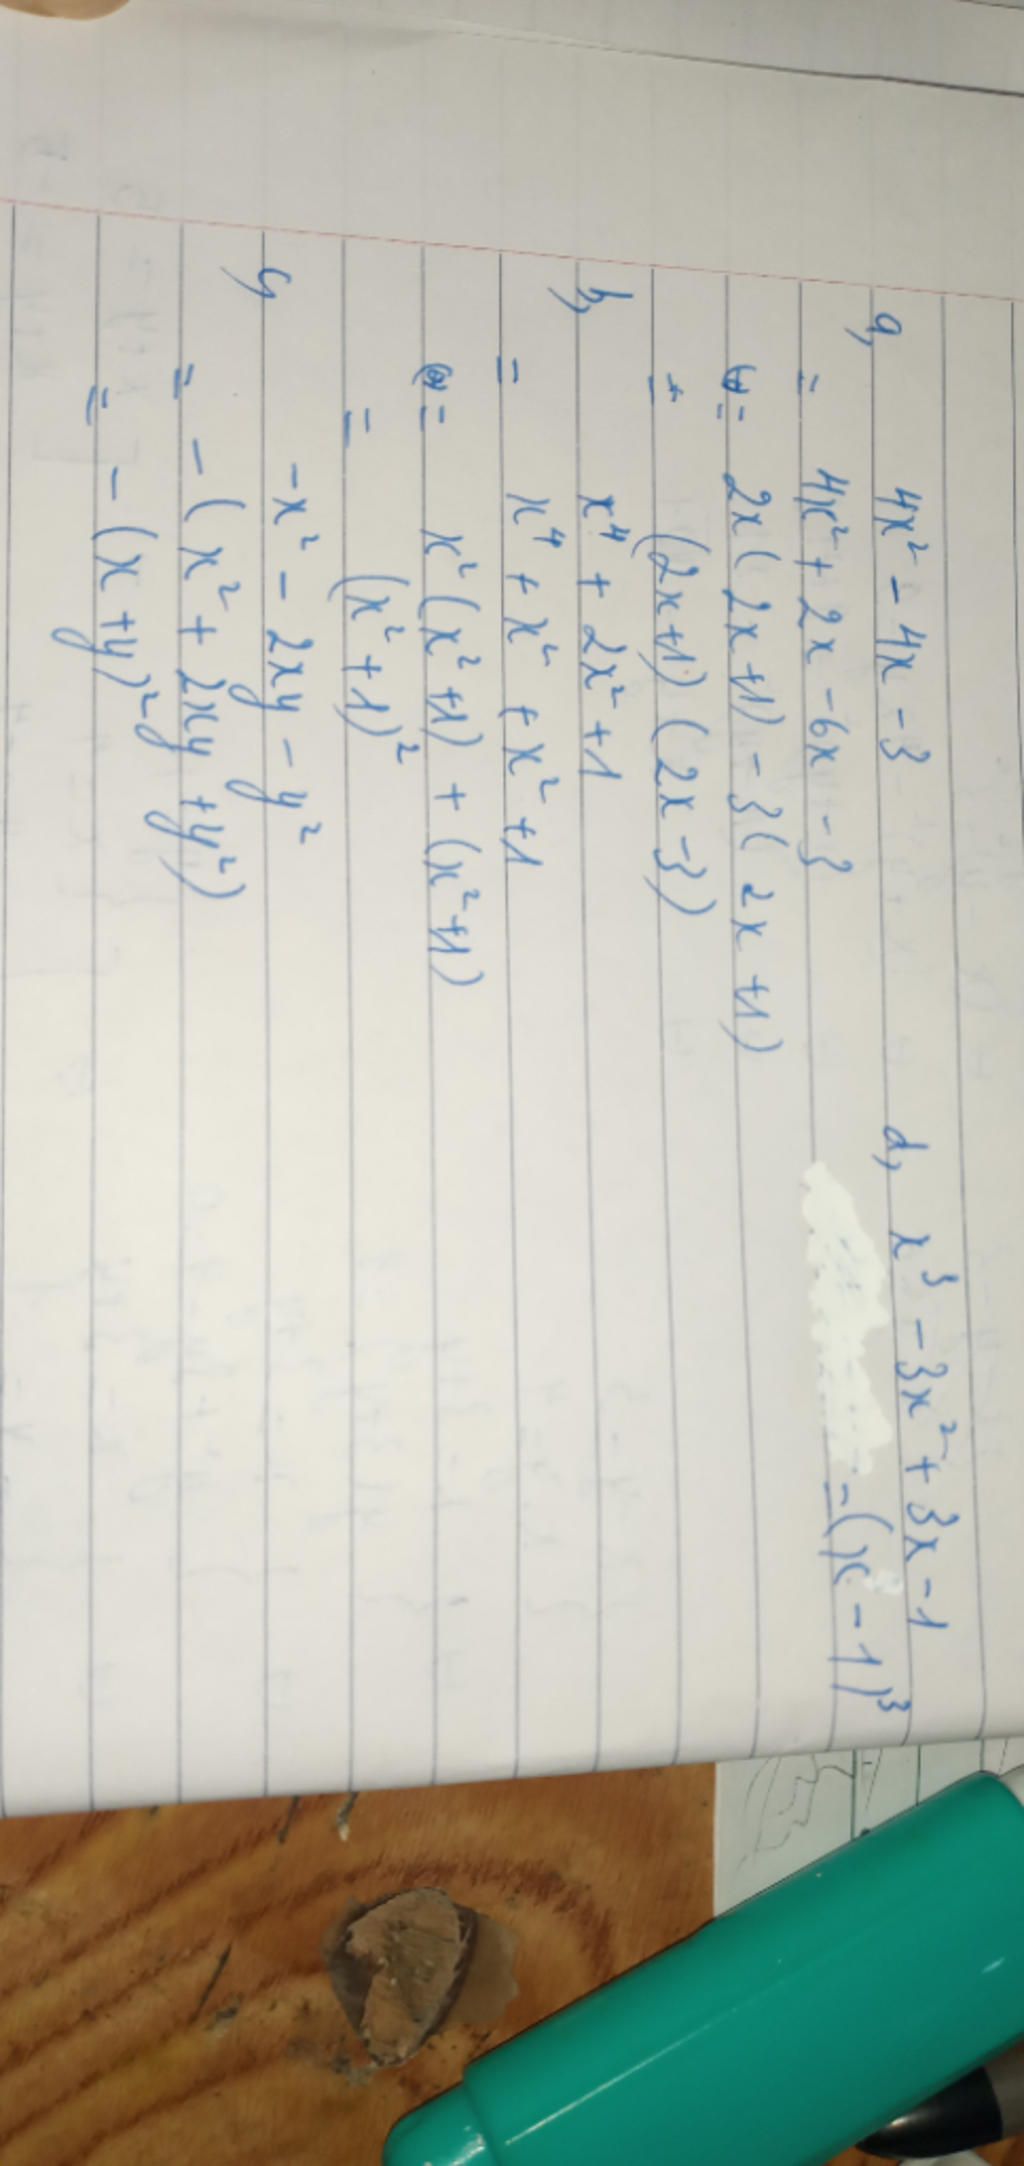 a, 4x² - 4x - 3
= 4x² + 2x - 6x - 3
= 2x(2x+1) - 3(2x+1)
= (2x+1)(2x-3)
b, x⁴ + 2x² + 1
= x⁴ + x² + x² + 1
= x²(x²+1) + (x²+1)
= (x²+1)²
c, -x² - 2xy - y²
= -(x² + 2xy + y²)
= -(x+y)²
d, x³ - 3x² + 3x - 1
= (x - 1)³